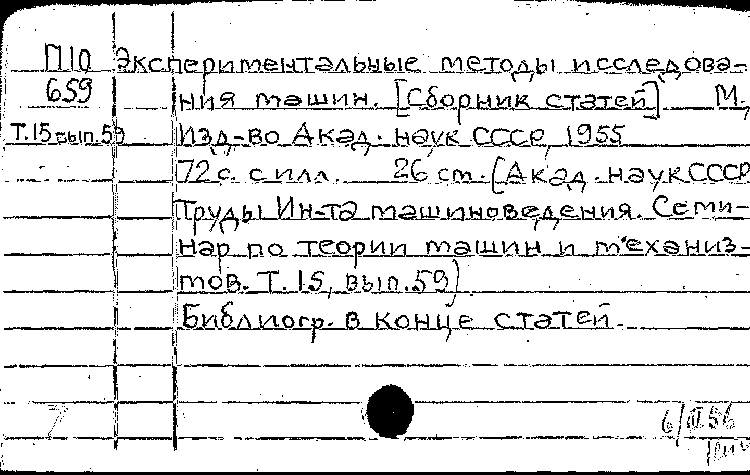 П10 Экспериментальные методы исследова-
659 ния машин. [Сборник статей] М.,
Т.15 вып.59 Изд-во Акад. наук СССР, 1955
72 с. с илл. 26 см. (Акад. наук СССР
Труды Ин-та машиноведения. Семи-
нар по теории машин и механиз-
мов. Т. 15, вып. 59)
Библиогр. в конце статей.
7